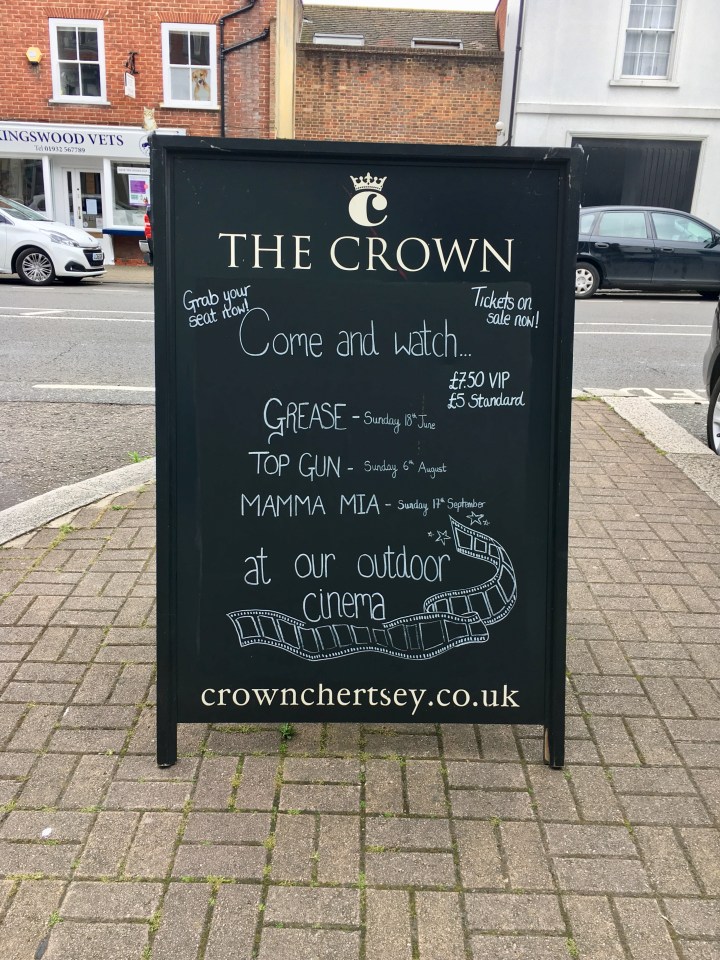 KINGSWOOD VETS
Tel 01932 567789
c
THE CROWN
Grab your
seat now!
Tickets on
sale now!
Come and watch...
£7.50 VIP
£5 Standard
GREASE - Sunday 18th June
TOP GUN - Sunday 6th August
MAMMA MIA - Sunday 17th September
at our outdoor
cinema
crownchertsey.co.uk